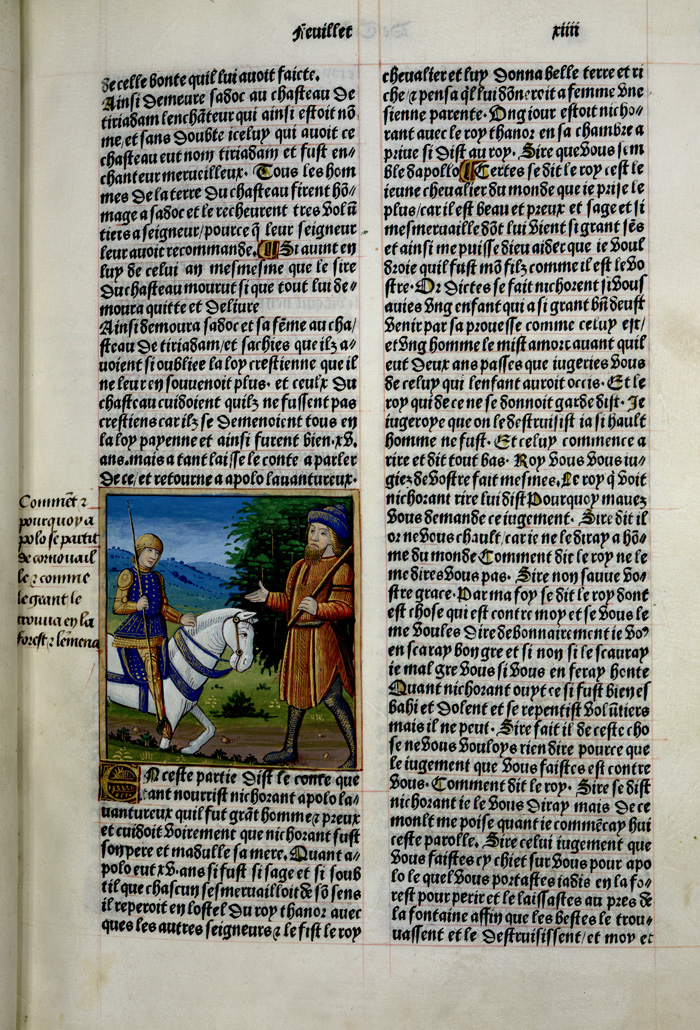 Feuillet xiiii
de celle bonte quil lui auoit faicte.
Ainsi demeure sadoc au chasteau de
tiriadam lenchãteur qui ainsi estoit nõ
me, et sans doubte iceluy qui auoit ce
chasteau eut nom tiriadam et fust en-
chanteur merueilleux. Tous les hom
mes de la terre du chasteau firent hõ-
mage a sadoc et le receurent tres volũ
tiers a seigneur/ pource q̃ leur seigneur
leur auoit recommande. Si auint en
luy de celui an mesmesme que le sire
du chasteau mourut si que tout lui de-
moura quitte et deliure
Ainsi demoura sadoc et sa fẽme au cha/
steau de tiriadam/ et sachies que ilz a-
uoient si oubliee la loy crestienne que il
ne leur en souuenoit plus. et ceulx du
chasteau cuidoient quilz ne fussent pas
crestiens car ilz se demenoient tous en
la loy payenne et ainsi furent bien. xv.
ans. mais a tant laisse le conte a parler
de ce/ et retourne a apolo lauantureux.
Commẽt ⁊
pourquoy a
polo se partit
de cornouail
le ⁊ comme
le geant le
trouua en la
forest ⁊ lemena
En ceste partie dist le conte que
tant nourrist nichorant apolo la-
uantureux quil fut grãt homme ⁊ preux
et cuidoit voirement que nichorant fust
son pere et madulle sa mere. Quant a-
polo eut xv. ans si fust si sage et si soub
til que chascun sesmerueilloit de sõ sens
il reperoit en lostel du roy thanor auec
ques les autres seigneurs ⁊ le fist le roy
cheualier et luy donna belle terre et ri
che/ ⁊ pensa q̃l lui dõneroit a femme vne
sienne parente. Ong iour estoit nicho-
rant auec le roy thanor en sa chambre a
priue si dist au roy. Sire que vous sem
ble dapollo Certes se dit le roy cest le
ieune cheualier du monde que ie prise le
plus/ car il est beau et preux et sage et si
mesmerueille dõt lui vient si grant sẽs
et ainsi me puisse dieu aider que ie voul
droie quil fust mõ filz comme il est le vo
stre. Or dictes se fait nichorent si vous
auies vng enfant qui a si grant bñ deust
venir par sa prouesse comme celuy est/
et vng homme le mist a mort auant quil
eut deux ans passes que iugeries vous
de celuy qui lenfant auroit occis. Et le
roy qui de ce ne se donnoit garde dist. Je
iugeroye que on le destruisist ia si hault
homme ne fust. Et celuy commence a
rire et dit tout bas. Roy vous vous iu-
giez de vostre fait mesmes. Le roy q̃ voit
nichorant rire lui dist Pourquoy mauez
vous demande ce iugement. Sire dit il
or ne vous chault/ car ie ne le diray a hõ-
me du monde Comment dit le roy ne le
me dires vous pas. Sire non sauue vo-
stre grace. Par ma foy se dit le roy dont
est chose qui est contre moy et se vous le
me voules dire debonnairement ie vo⁹
en scaray bon gre et si non si le scauray
ie mal gre vous si vous en feray honte
Quant nichorant ouyt ce si fust bien es
bahi et dolent et se repentist volũtiers
mais il ne peut. Sire fait il de ceste cho
se ne vous vouloys rien dire pource que
le iugement que vous faistes est contre
vous. Comment dit le roy. Sire se dist
nichorant ie le vous diray mais de ce
moult me poise quant ie commẽcay hui
ceste parolle. Sire celui iugement que
vous faistes cy chiet sur vous pour apo
lo le quel vous portastes iadis en la fo-
rest pour perir et le laissastes au pres de
la fontaine affin que les bestes le trou-
uassent et le destruisissent/ et moy et